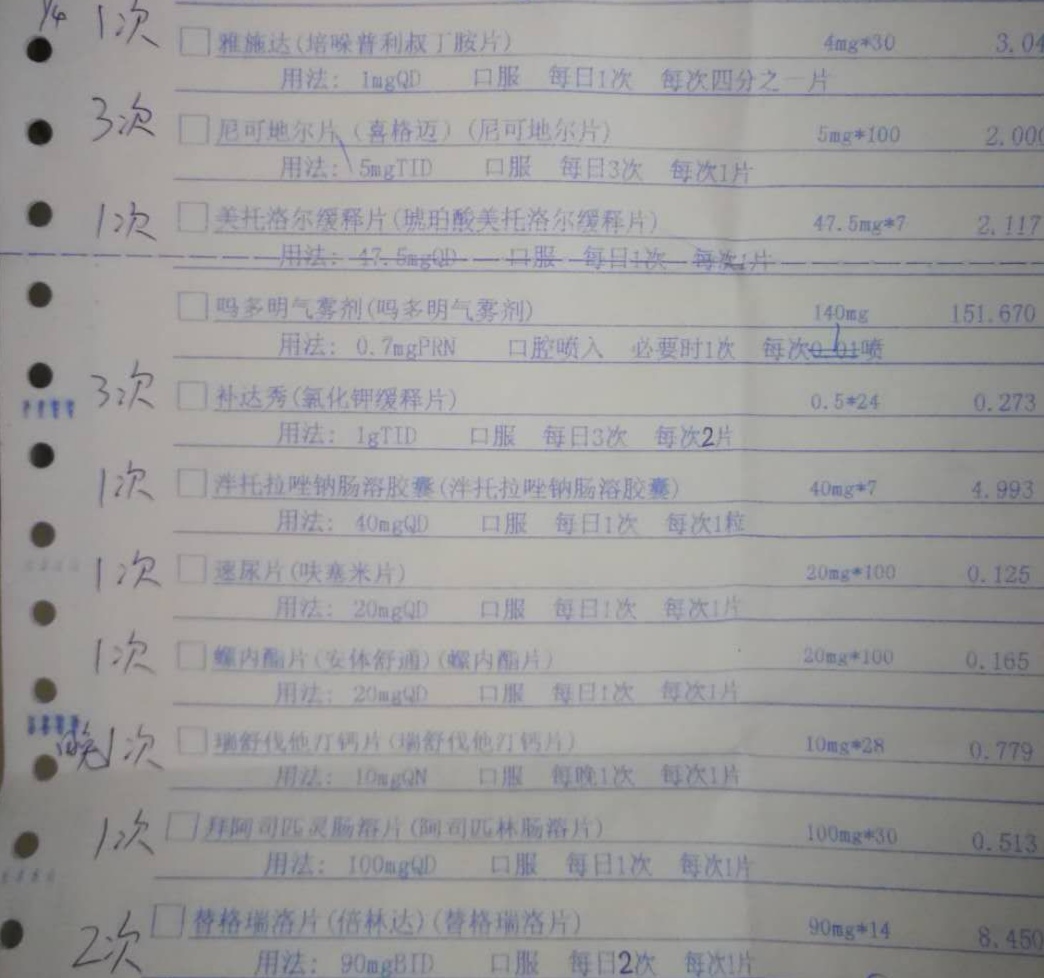 1/4 1次 雅施达(培哚普利叔丁胺片) 4mg*30 3.04
用法: 1mgQD 口服 每日1次 每次四分之一片
3次 尼可地尔片(喜格迈)(尼可地尔片) 5mg*100 2.000
用法: 5mgTID 口服 每日3次 每次1片
1次 美托洛尔缓释片(琥珀酸美托洛尔缓释片) 47.5mg*7 2.117
用法: 47.5mgQD 口服 每日1次 每次1片
吗多明气雾剂(吗多明气雾剂) 140mg 151.670
用法: 0.7mgPRN 口腔喷入 必要时1次 每次0.01喷
3次 补达秀(氯化钾缓释片) 0.5*24 0.273
用法: 1gTID 口服 每日3次 每次2片
1次 泮托拉唑钠肠溶胶囊(泮托拉唑钠肠溶胶囊) 40mg*7 4.993
用法: 40mgQD 口服 每日1次 每次1粒
1次 速尿片(呋塞米片) 20mg*100 0.125
用法: 20mgQD 口服 每日1次 每次1片
1次 螺内酯片(安体舒通)(螺内酯片) 20mg*100 0.165
用法: 20mgQD 口服 每日1次 每次1片
晚1次 瑞舒伐他汀钙片(瑞舒伐他汀钙片) 10mg*28 0.779
用法: 10mgQN 口服 每晚1次 每次1片
1次 拜阿司匹灵肠溶片(阿司匹林肠溶片) 100mg*30 0.513
用法: 100mgQD 口服 每日1次 每次1片
2次 替格瑞洛片(倍林达)(替格瑞洛片) 90mg*14 8.450
用法: 90mgBID 口服 每日2次 每次1片